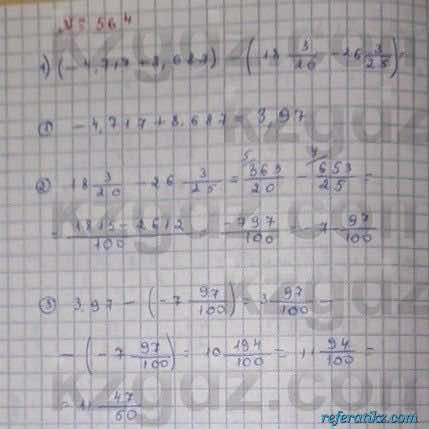 № 564
1) (-4,717+8,687) - (18 3/20 - 26 3/25) =
① -4,717+8,687 = 3,97
② 18 3/20 - 26 3/25 = 363/20 - 653/25 =
= 1815-2612/100 = -797/100 = -7 97/100
③ 3,97 - (-7 97/100) = 3 97/100 -
- (-7 97/100) = 10 194/100 = 11 94/100 =
= 11 47/50
kzgdz.com
referatikz.com